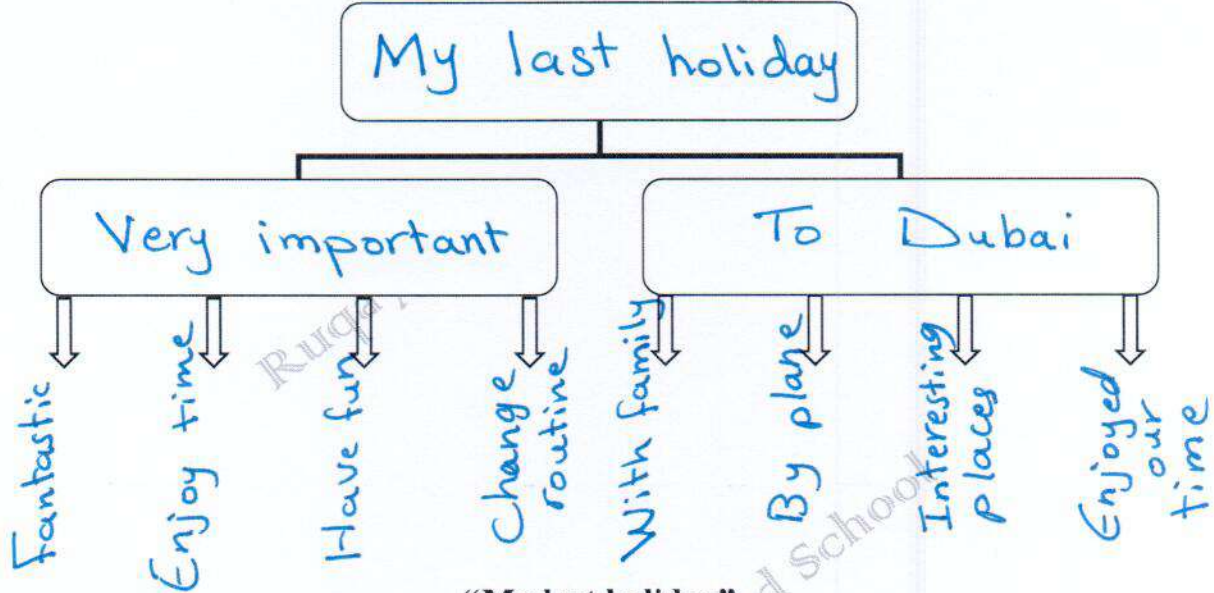 My last holiday
Very important
To Dubai
Fantastic
Enjoy time
Have fun
Change
routine
With family
By plane
Interesting
places
Enjoyed
our
time
School
"My last holiday"